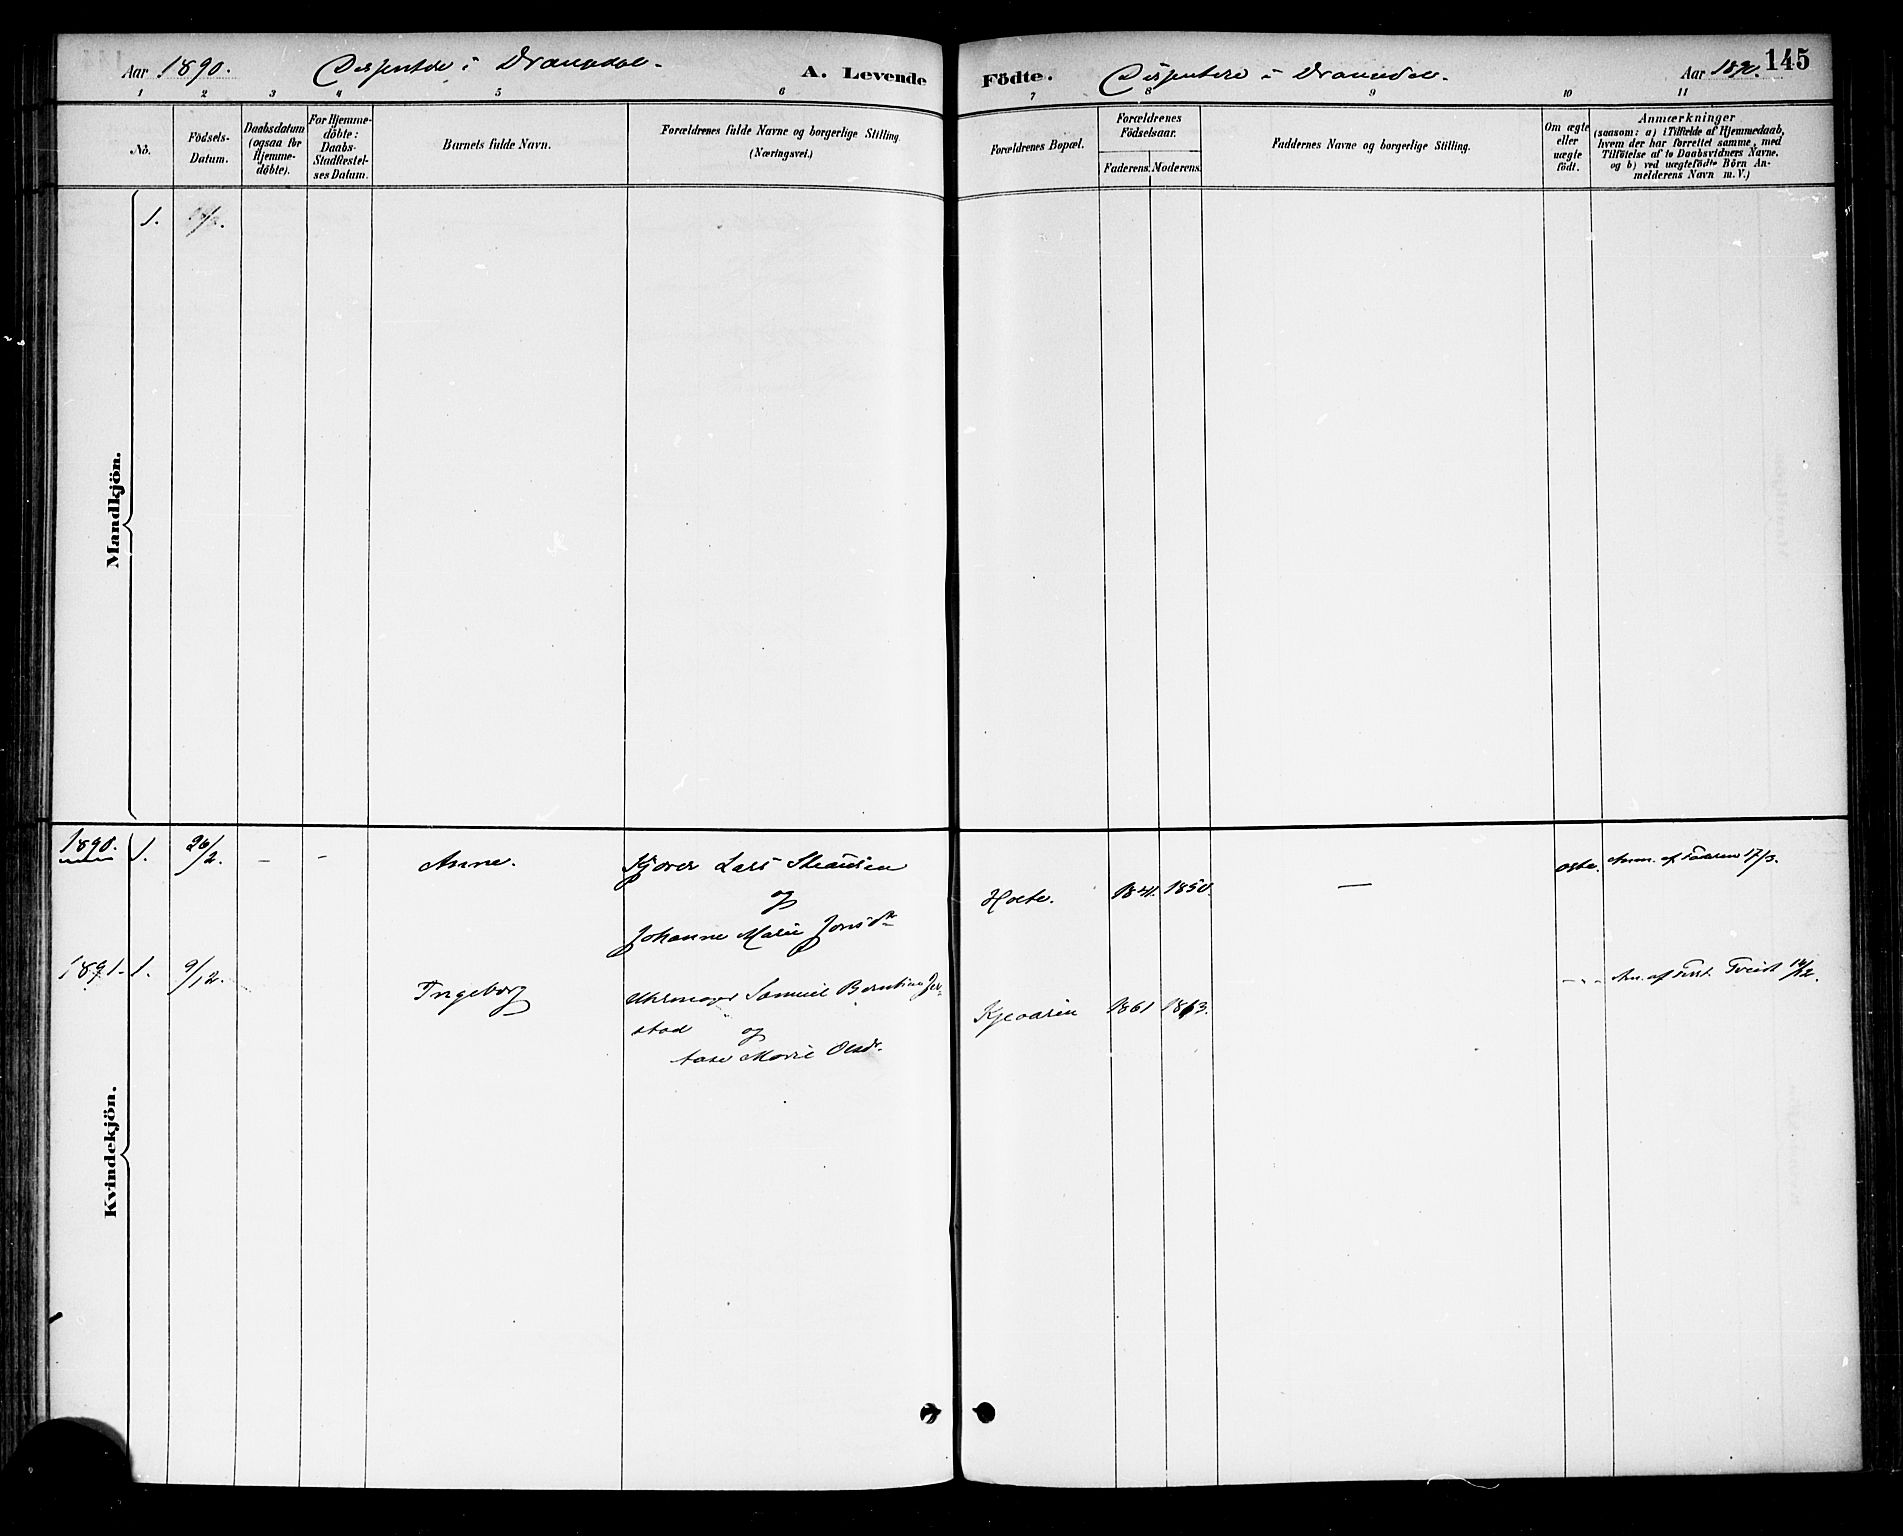 Aar 1890. Dissentere i Drangedal. A. Levende
Födte. Dissentere i Drangedal. Aar 1890. 145
1 2 3 4 5 6
7 8 9 10 11
No.
Födsels-
Datum.
Daabsdatum
(ogsaa for
Hjemme-
döbte).
For Hjemme-
döbte:
Daabs-
Stadfæstel-
ses Datum.
Barnets fulde Navn.
Forældrenes fulde Navne og borgerlige Stilling.
(Næringsvei.)
Forældrenes Bopæl.
Forældrenes
Födselsaar.
Faderens. Moderens.
Faddernes Navne og borgerlige Stilling.
Om ægte
eller
uægte
födt.
Anmærkninger
(saasom: a) i Tilfælde af Hjemmedaab,
hvem der har forrettet samme, med
Tilföielse af to Daabsvidners Navne.
og b) ved uægtefödte Börn An-
melderens Navn m. V.)
Mandkjön.
1.
Kvindekjön.
1890. 1. 26/2. – – Anne. Lars
og
Johanne Marie Jonsd.
Holte. 1841. 1850. — Anm. af Faderen 17/3.
1891. 1. 9/12. Ingeborg Uhrmager Samuel
stad og
Marie Olsdr.
1861 1863. - - - Anm. af